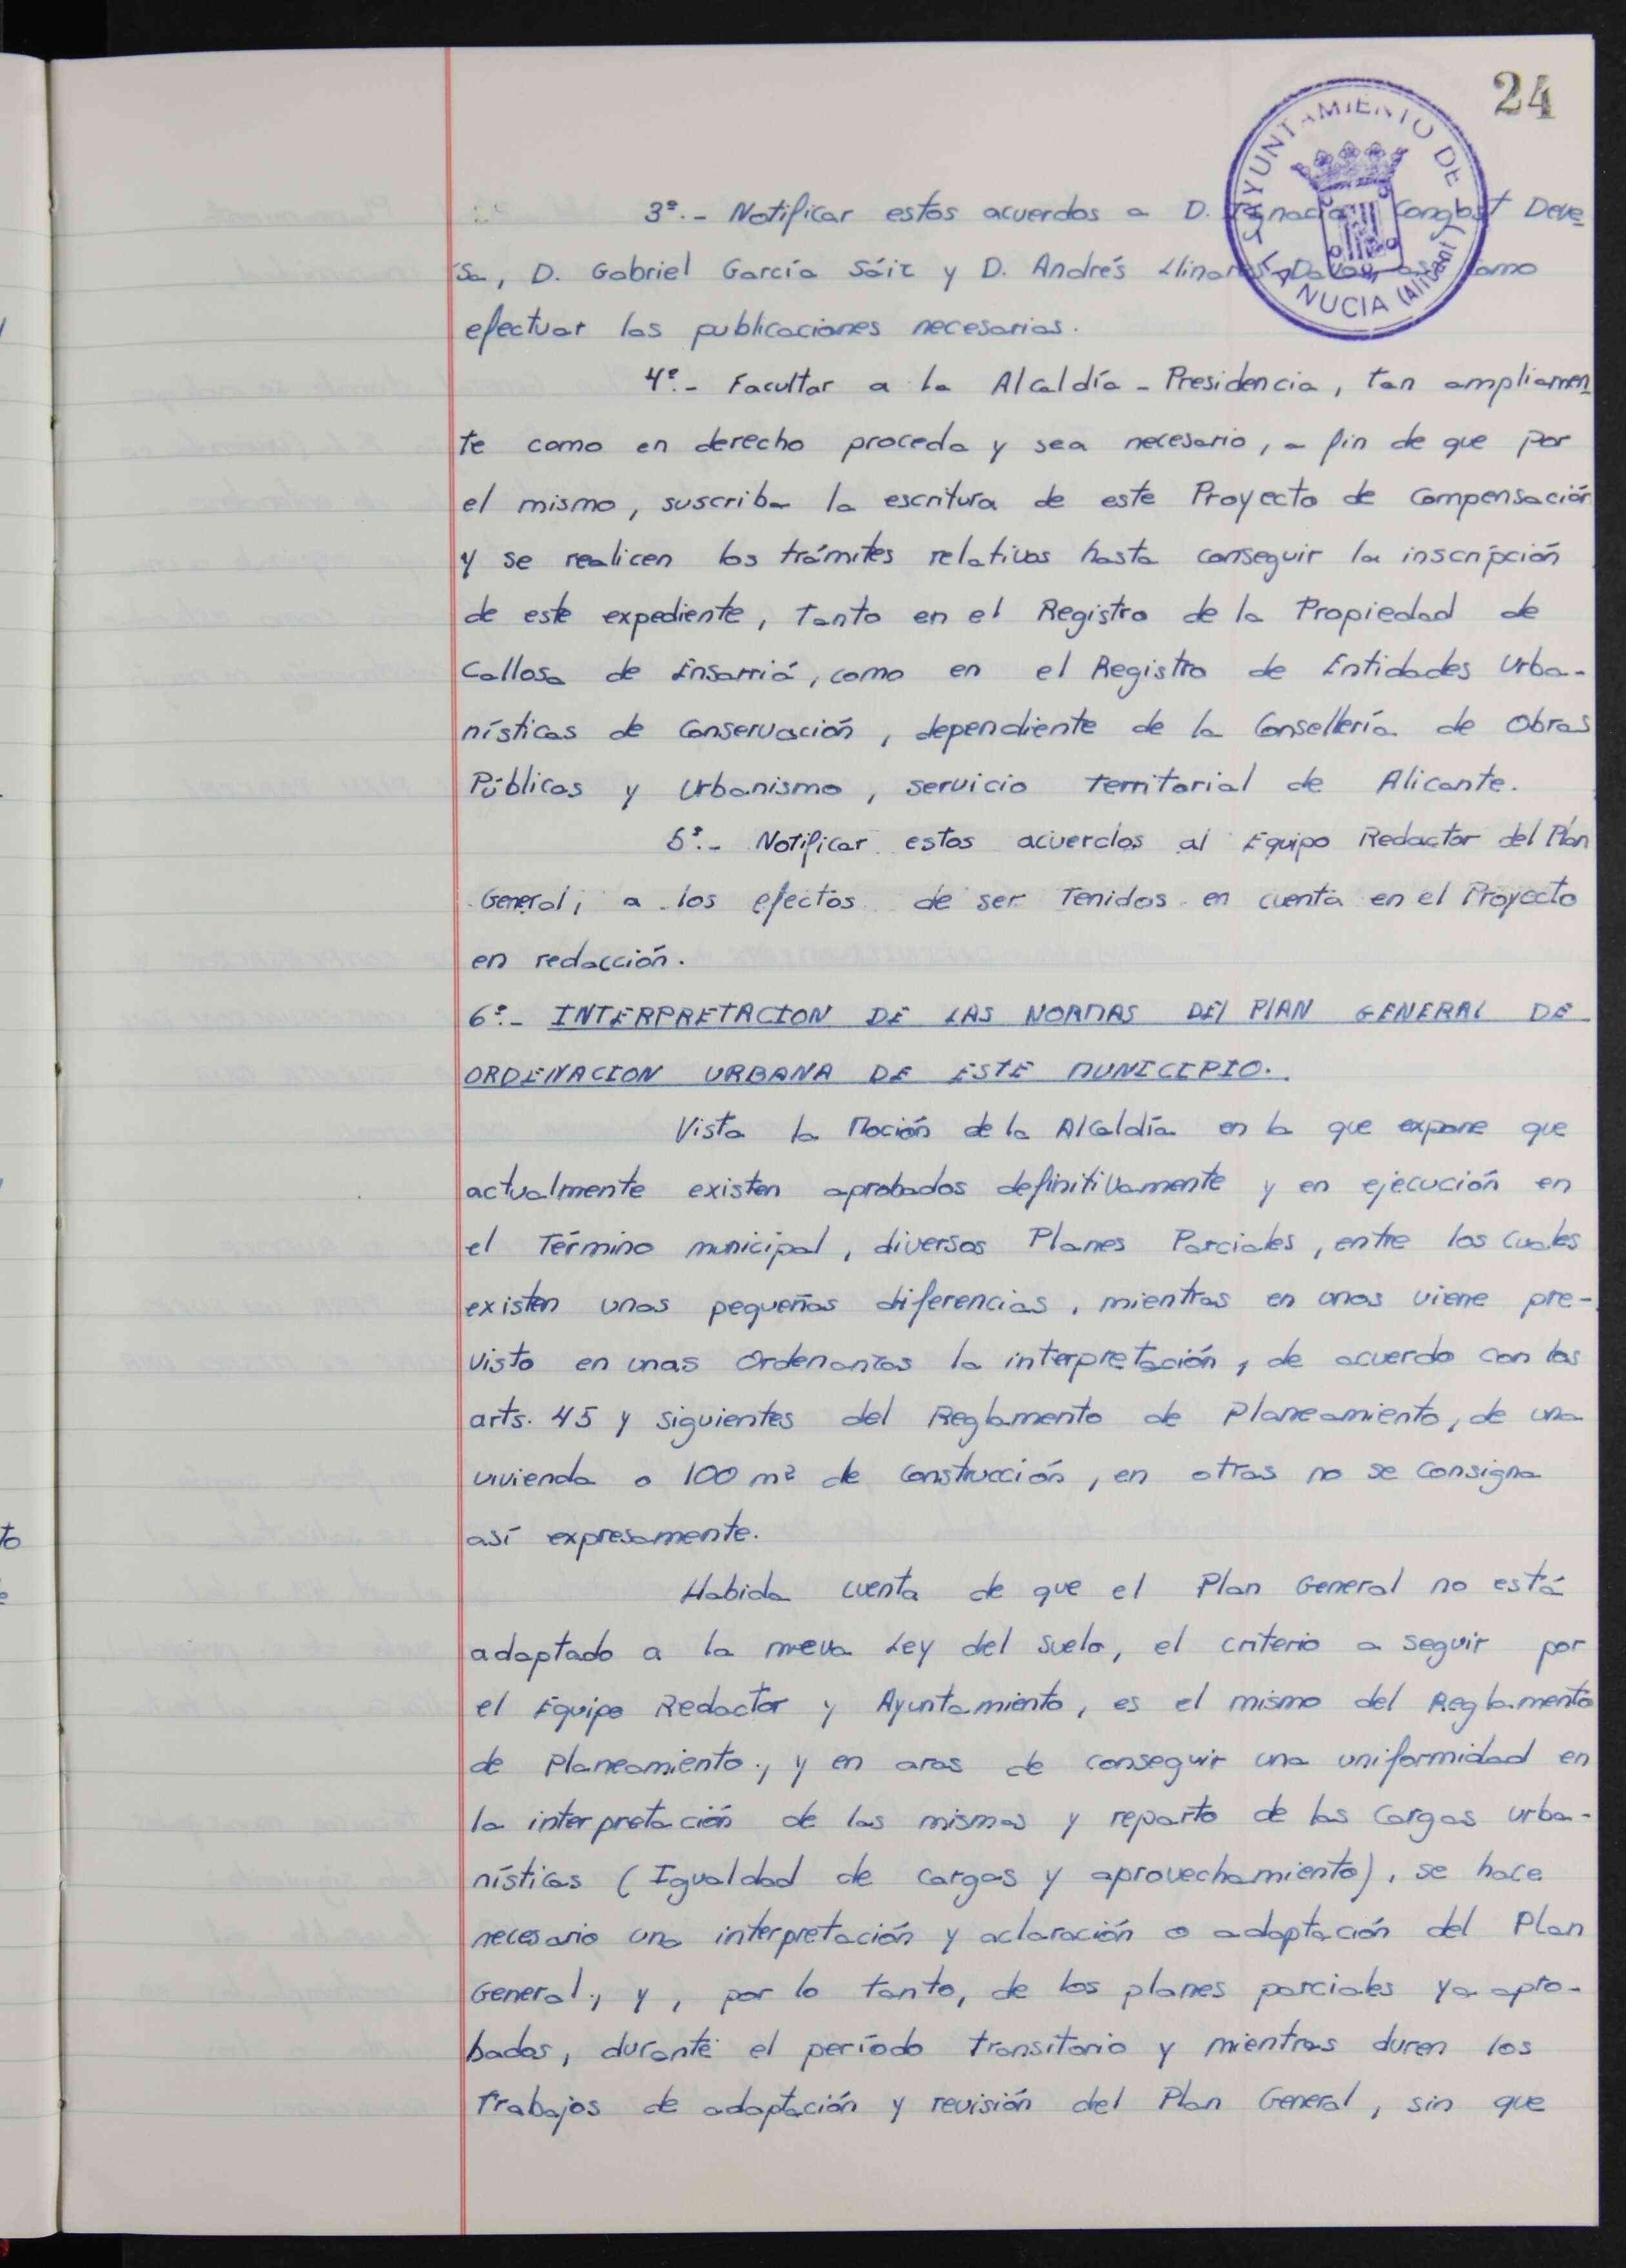 24
AYUNTAMIENTO DE
LA NUCIA (Alicante)
3º.- Notificar estos acuerdos a D. Ignacio Congost Deve-
sa, D. Gabriel García Sáiz y D. Andrés Llinares como
efectuar las publicaciones necesarias.
4º.- Facultar a la Alcaldía - Presidencia, tan ampliamen-
te como en derecho proceda y sea necesario, a fin de que por
el mismo, suscriba la escritura de este Proyecto de Compensación
y se realicen los trámites relativos hasta conseguir la inscripción
de este expediente, tanto en el Registro de la Propiedad de
Callosa de Ensarriá, como en el Registro de Entidades Urba-
nísticas de Conservación, dependiente de la Consellería de Obras
Públicas y Urbanismo, servicio territorial de Alicante.
5º.- Notificar estos acuerdos al Equipo Redactor del Plan
General, a los efectos de ser tenidos en cuenta en el Proyecto
en redacción.
6º.- INTERPRETACION DE LAS NORMAS DEL PLAN GENERAL DE
ORDENACION URBANA DE ESTE MUNICIPIO.
Vista la Moción de la Alcaldía en la que expone que
actualmente existen aprobados definitivamente y en ejecución en
el Término municipal, diversos Planes Parciales, entre los cuales
existen unas pequeñas diferencias, mientras en unos viene pre-
visto en unas Ordenanzas la interpretación, de acuerdo con los
arts. 45 y siguientes del Reglamento de Planeamiento, de una
vivienda o 100 m² de construcción, en otras no se consigna
así expresamente.
Habida cuenta de que el Plan General no está
adaptado a la nueva Ley del Suelo, el criterio a seguir por
el Equipo Redactor y Ayuntamiento, es el mismo del Reglamento
de Planeamiento., y en aras de conseguir una uniformidad en
la interpretación de las mismas y reparto de las Cargas urba-
nísticas (Igualdad de cargas y aprovechamiento), se hace
necesario una interpretación y aclaración o adaptación del Plan
General., y, por lo tanto, de los planes parciales ya apro-
bados, durante el período transitorio y mientras duren los
trabajos de adaptación y revisión del Plan General, sin que